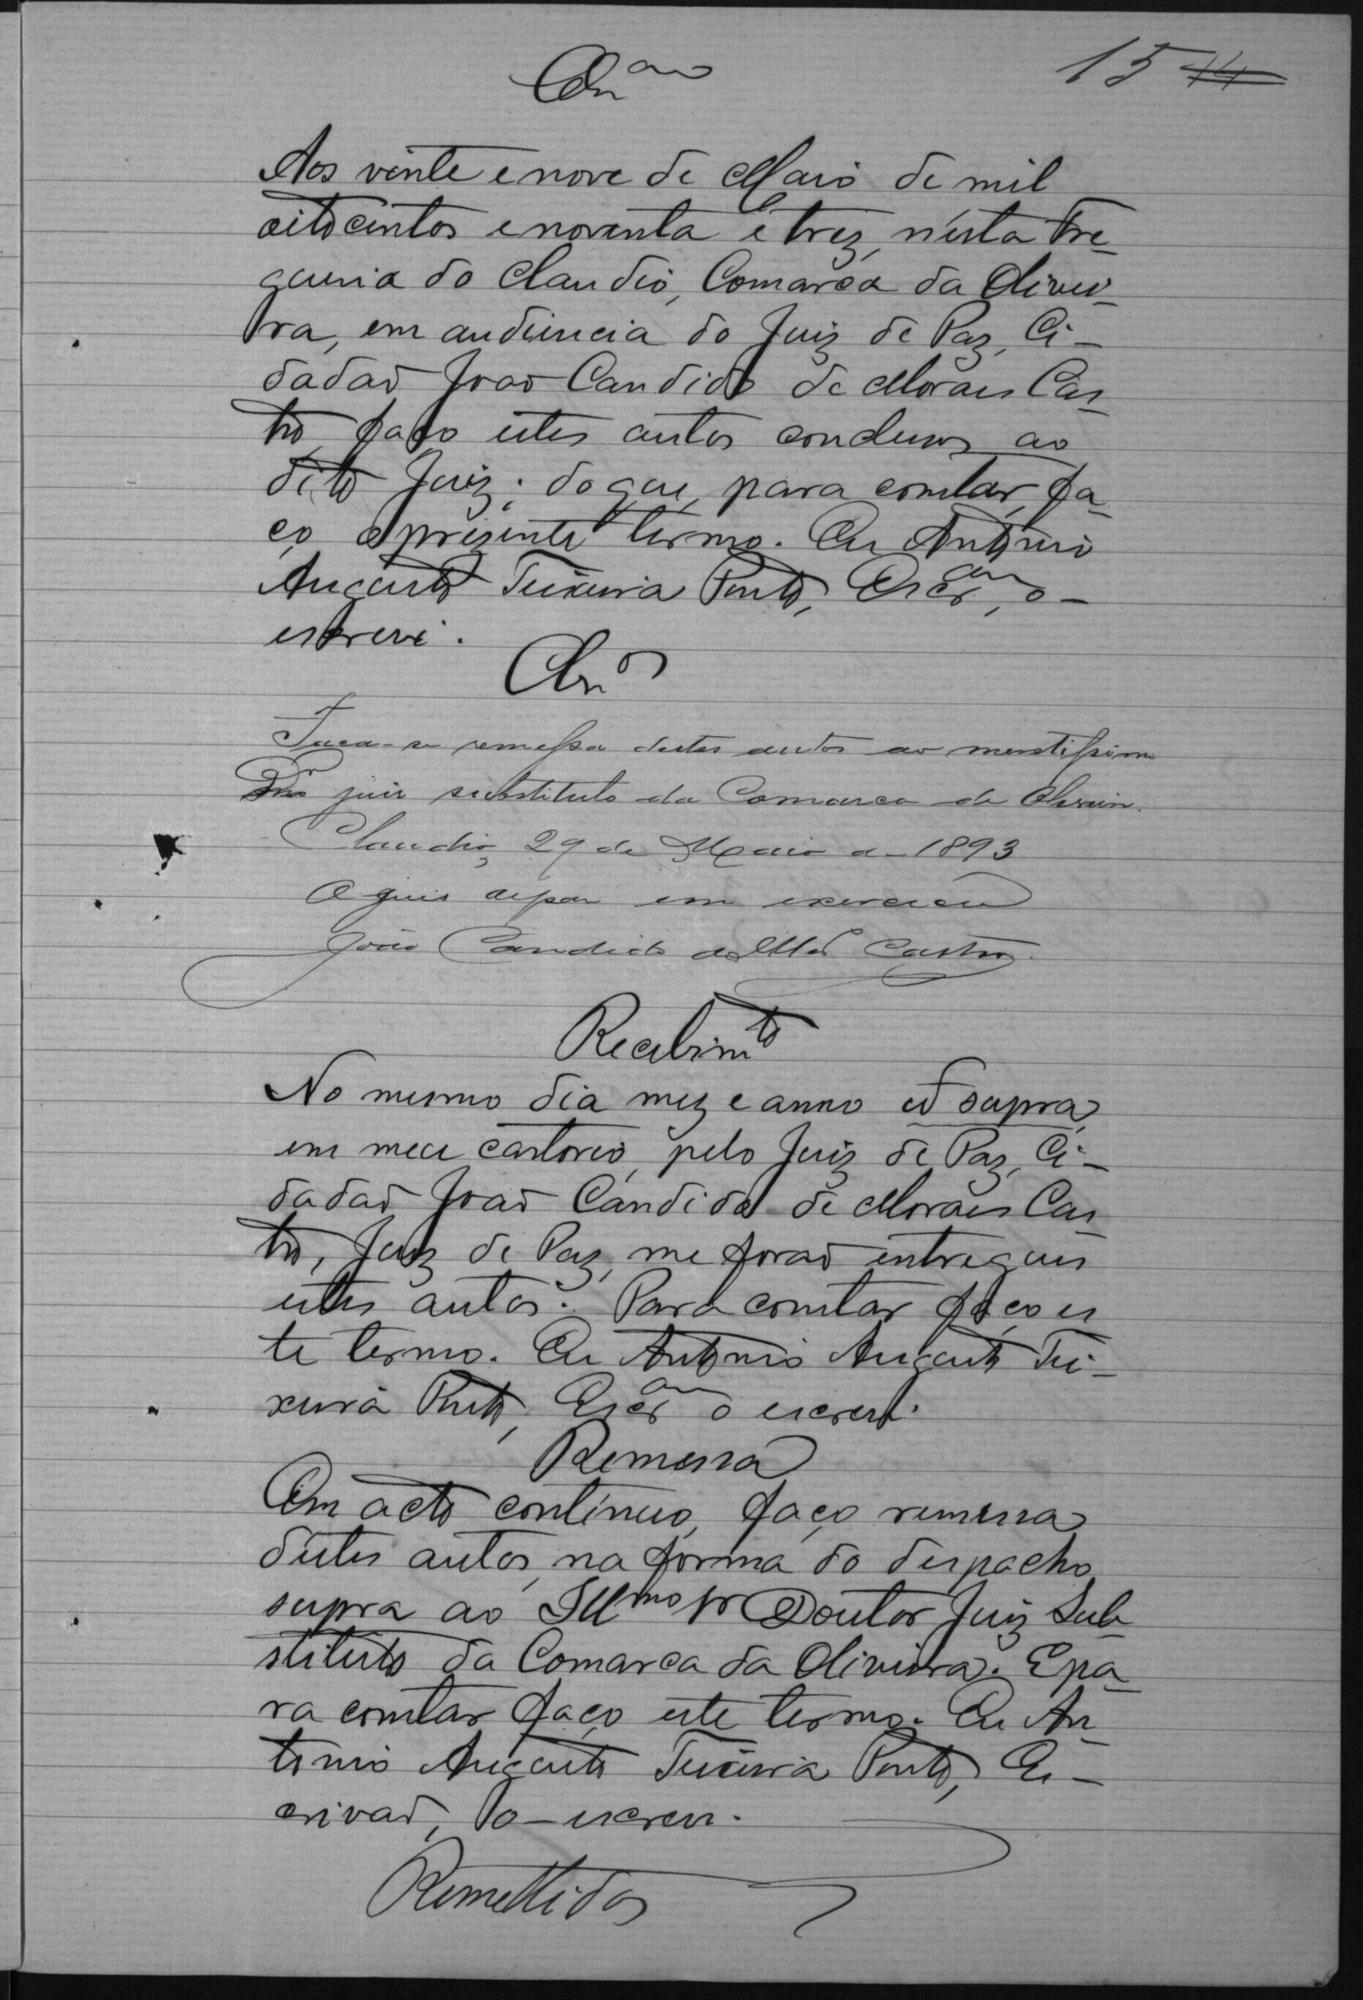 15 14
Cl.ão
Aos vinte e nove de Maio de mil
oito centos e noventa e trez, nésta Fre-
guesia do Claudio, Comarca da Olivei-
ra, em audiencia do Juiz de Paz, Ci-
dadaõ Joaõ Candido de Moraes Cas-
tro, faço estes autos concluzos ao
dito Juiz; do que, para constar, fa-
ço o presente termo. Eu Antonio
Augusto Teixeira Porto, Escr.am, o-
escrevi.
Cl.os
Faça-se remessa destes autos ao meretissimo
juiz substituto da Comarca de Oliveira.
Claudio, 29 de Maio de 1893
O juis depas em exercicio
João Candido de M.es Castro.
Recebim.to
No mesmo dia mez e anno ut supra,
em meu cartorio, pelo Juiz de Paz, Ci-
dadaõ Joaõ Candido de Moraes Cas
tro, Juiz de Paz, me foraõ entregues
estes autos. Para constar faço es
te termo. Eu Antonio Augusto Tei-
xeira Porto, Escr.am o escrevi.
Remessa
Em acto continuo, faço remessa
déstes autos, na forma do despacho
supra ao Ill.mo Sr Doutor Juiz Sub
stituto da Comarca da Oliveira. E pa-
ra constar faço este termo. Eu An-
tonio Augusto Teixeira Porto, Es-
crivaõ, o-escrevi.
Remettidos